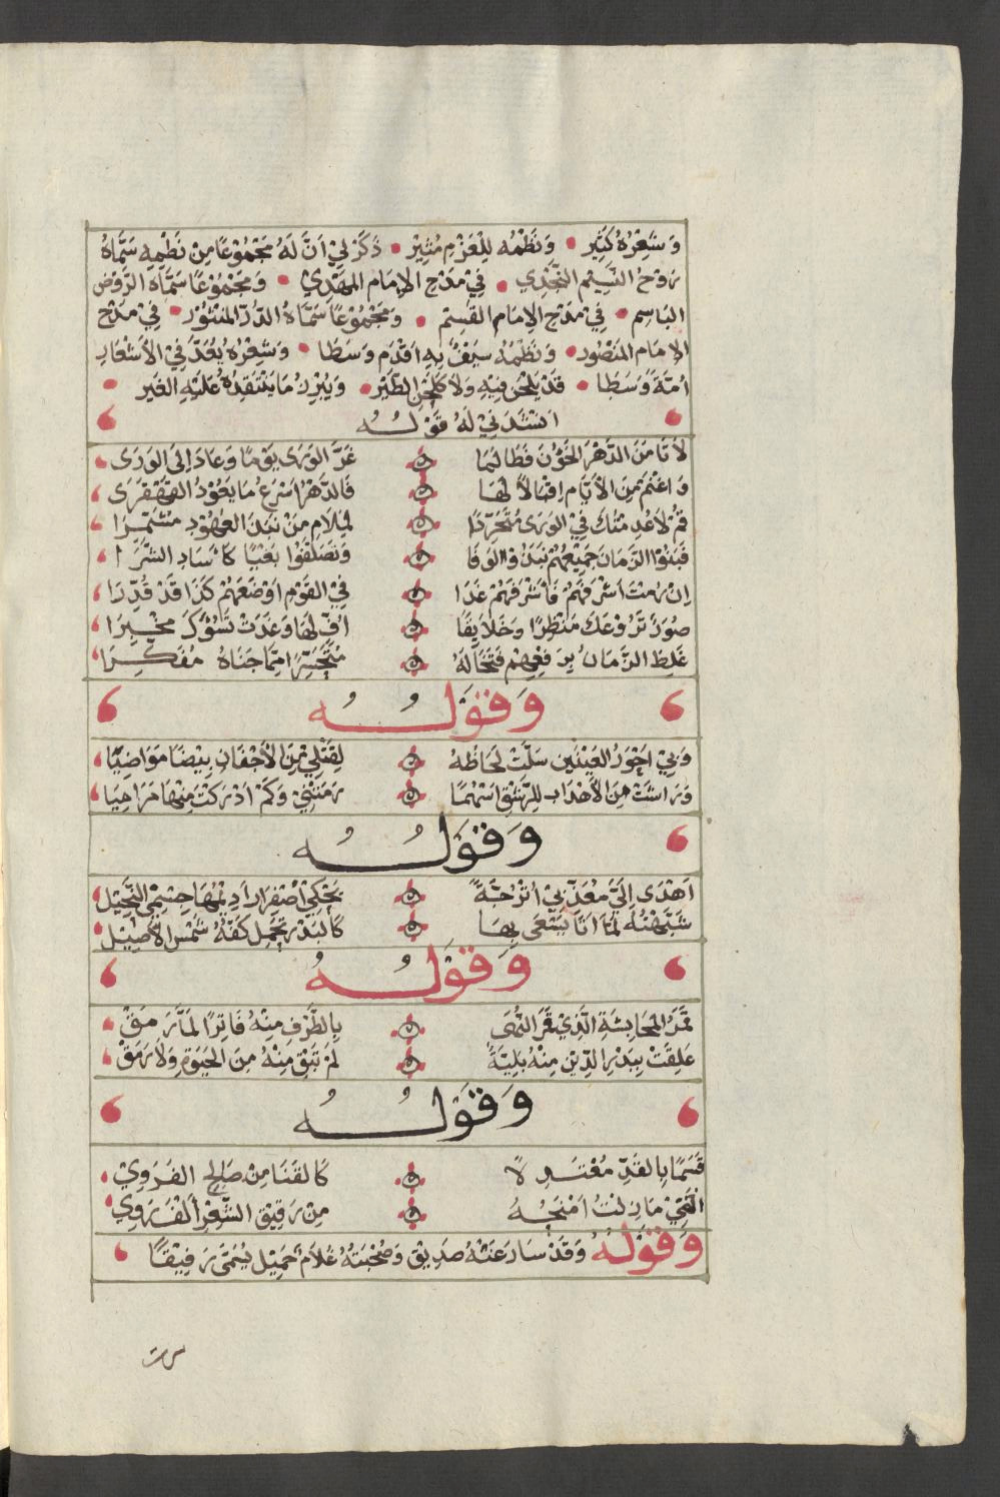 وَشِعْرُهُ كَثِير • وَنَظْمُه لِلْعَزْمِ مُثِيْر • ذَكَرَ لِيْ اَنَّ لَهُ مَجْمُوْعًا مِن نَظْمِهِ سَمَّاهُ
رَوْحَ النَّسِيْم النَّجْدِي • فِيْ مَدْحِ الاِمَام المَهْدِيْ • وَمَجْمُوْعًا سَمَّاه الرَّوْض
البَاسِم • فِيْ مَدْحِ الاِمَامِ القَسِم • وَمَجْمُوْعًا سَمَّاهُ الدُّرَّ المَنْثُوْر • فِيْ مَدْحِ
الاِمَام المَنْصُور • وَنَظْمُهُ سَيْفٌ بِهِ اَقْدَم وَسَطَا • وَشِعْرُهُ يُعَدُّ فِيْ الأَشْعَارِ
اُمَّةً وَسَطَا • قَدْ يَلْحَن فِيْهِ وَلاَ كَلَحْنِ الطَّيْر • وَيُبْرِزُ مَا يَنْتَقِدُهُ عَلَيْهِ الغَيْر •
انْشَدَنِيْ لَهُ قَوْلُهُ
لاَ تَأمَنَ الدَّهْرَ الخَؤُنَ فَطَالَمَا غَرَّ الوَرَى يَوْمًا وَعَادَ اِلَى الوَرَى
وَاغْنَمْ مِنَ الأَيَّامِ اِقْبَالاً لَهَا فَالدَّهْرُ اَسْرَعُ مَا يَعُوْدُ القَهْقَرَى
فَبَنُوْا الزَّمَانِ جَمِيْعُهُمْ نَبَذُوْا الوَفَا
اِنْ رُمْتَ اَشْرَفَهُمْ فَأَشْرَفُهُمْ غَدَا فِيْ القَوْمِ اَوْضَعَهُمْ كَذَا قَدْ قُدِّرَا
صُوَرٌ تَرُوْعُكَ مَنْظِرًا وَخَلاَيِقًا اُفٍّ لَهَا وَغَدَتْ تَسُؤْكَ مَخْبِرَا
غَلِطَ الزَّمَانُ بِرَفْعِهِمْ فَتَخَالَهُ مُتَحَسِّرًا مِمَّا جَنَاهُ مُفَكِّرَا
وَقَوْلُهُ
وَبِيْ اَحْوَرُ العَيْنَيْنِ سَلَّتْ لِحَاظُهُ لِقَتْلِيْ مِنَ الأَجْفَانِ بِيْضًا مَوَاضِيًا
وَرَاشَتْ مِنَ الأَهْدَابِ لِلرَّشْقِ اَسْهُمًا رَمَتْنِيْ وَكَمْ اَدْرَكْتُ مِنْهَا مَرَامِيَا
وَقَوْلُهُ
اَهْدَى اِلَيَّ مُعَذِّبِيْ اُتْرُجَّةً يَحْكِيْ اصْفِرَارَ اَدِيْمُهَا جِسْمِي النَّحِيْل
شَبَّهْتُهُ لَمَّا اَتَا يَسْعَى بِهَا كَالبَدْرِ تَحْمِل كَفُّهُ شَمْسَ الأَصِيْل
وَقَوْلُهُ
قَمَرُ المَحَابِشَةِ الَّذِيْ قَمَرَ النُّهَى بِالطَّرْفِ مِنْهُ فَاتِرًا لَمَّا رَمَقْ
عَلِقَتْ بِبَدْرِ الدِّيْن مِنْهُ بَلِيَّةً لَمْ تَبْقَ مِنْهُ مِنَ الحَيوةِ وَلاَ رَمَقْ
وَقَوْلُهُ
قَسَمًا بِالقَدِّ مُعْتَدِلاً كَالقَنَا مِنْ صَالِحِ القَرَوِيْ
مَا زِلْتُ اَمْنَحُهُ مِنْ رَقِيْقِ الشِّعْرِ
وَقَوْلُهُ وَقَدْ سَارَ عَنْهُ صَدِيْق وَصُحْبَتُهُ غُلاَم جَمِيْل يُسَمَّى رَفِيْقًا
سرت